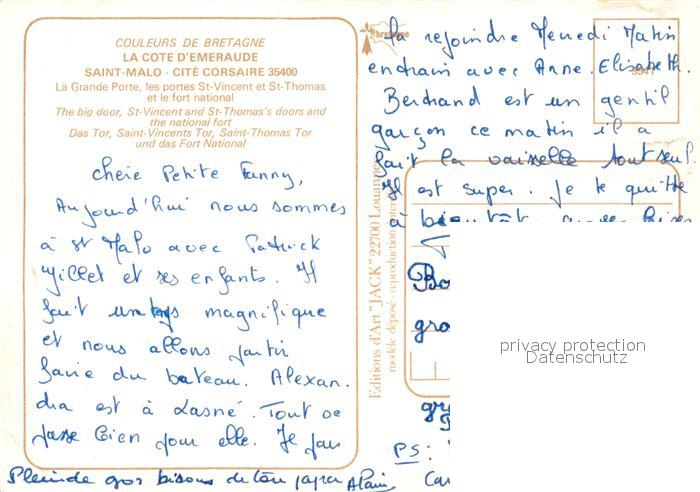 COULEURS DE BRETAGNE
LA COTE D'EMERAUDE
SAINT-MALO - CITÉ CORSAIRE 35400
La Grande Porte, les portes St-Vincent et St-Thomas
et le fort national
The big door, St-Vincent and St-Thomas's doors and
the national fort
Das Tor, Saint-Vincents Tor, Saint-Thomas Tor
und das Fort National
Chère Petite Fanny,
Aujourd'hui nous sommes
à St Malo avec Patrick
Millet et ses enfants. Il
fait un temps magnifique
et nous allons partir
faire du bateau. Alexan.
dra est à Lasné. Tout se
passe bien pour elle. Je pars
Pleinde gros bisous de ton papa Alain
la rejoindre Mercredi Matin
entrain avec Anne. Elisabeth.
Bertrand est un gentil
garçon ce matin il a
fait la vaisselle tout seul.
Il est super. Je te quitte
à bientôt
gro
P.S :
Editions d'Art "JACK" 22700 Louannec
modèle déposé - reproduction inter
privacy protection
Datenschutz